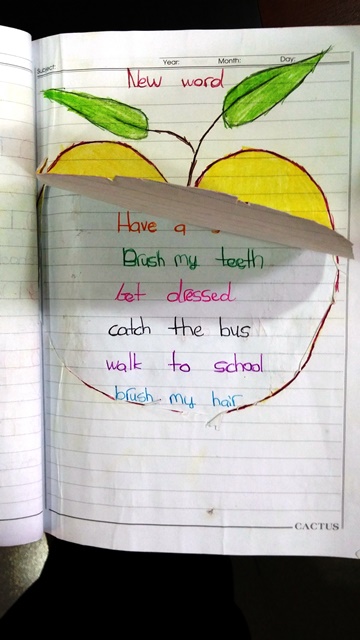 Subject:
Year: Month: Day:
New word
Have a
Brush my teeth
Get dressed
catch the bus
walk to school
brush my hair
CACTUS